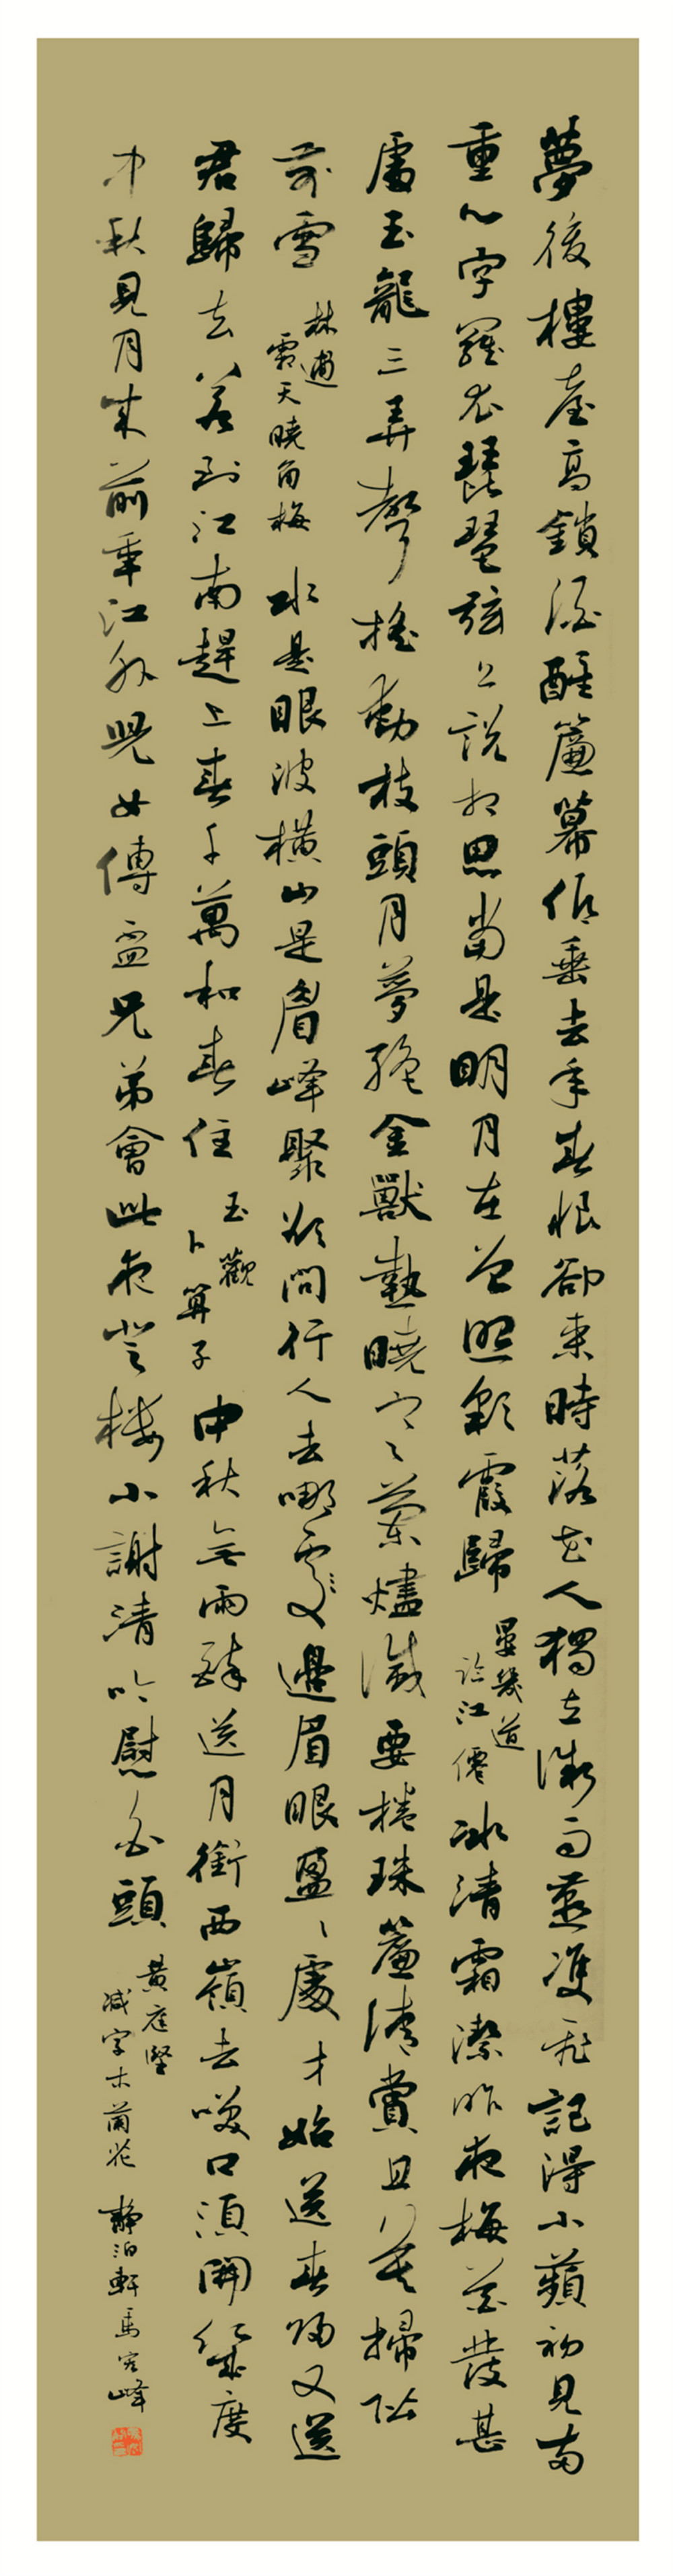 夢後樓臺高鎖酒醒簾幕低垂去年春恨卻來時落花人獨立微雨燕雙飛記得小蘋初見兩
重心字羅衣琵琶弦上說相思當是明月在曾照彩霞歸
晏幾道
臨江僊
冰清霜潔昨夜梅花發甚
處玉龍三弄聲搖動枝頭月夢絕金獸熱曉寒蘭燼滅要捲珠簾清賞且莫掃階
前雪
林逋
霜天曉角梅
水是眼波橫山是眉峰聚欲問行人去哪處邊眉眼盈盈處才始送春歸又送
君歸去若到江南趕上春千萬和春住
玉觀
卜算子
中秋無雨醉送月銜西嶺去笑口須開幾度
中秋見月來前年江外兒女傳盃兄弟會此夜登樓小謝清吟慰白頭
黃庭堅
減字木蘭花
靜泊軒馬宏峰